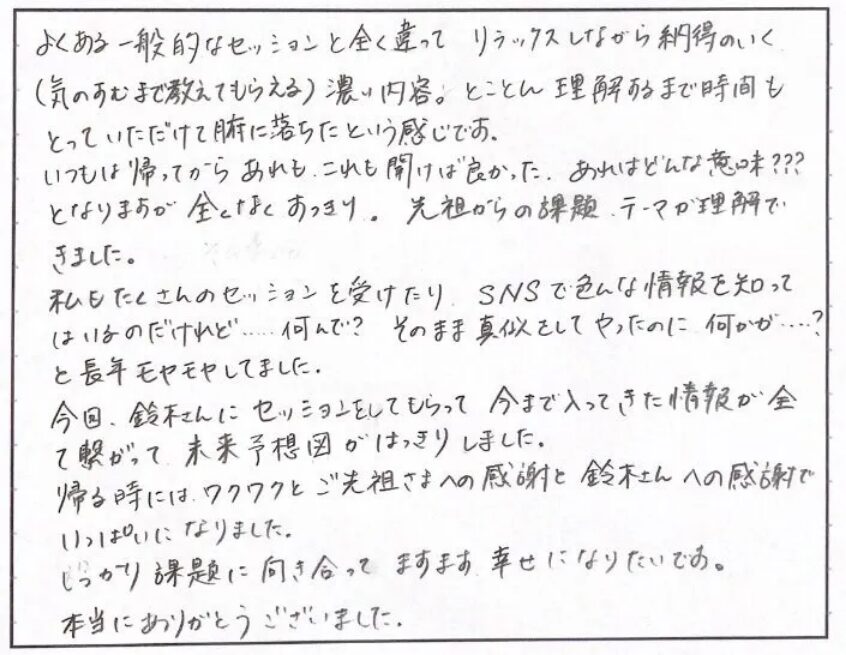 よくある一般的なセッションと全く違って リラックスしながら納得のいく
(気のすむまで教えてもらえる)濃い内容。とことん理解するまで時間も
とっていただけて腑に落ちたという感じです。
いつもは帰ってから あれも、これも聞けば良かった、あれはどんな意味???
となりますが 全くなくすっきり。先祖からの課題、テーマが理解で
きました。
私もたくさんのセッションを受けたり、SNSで色んな情報を知って
はいるのだけれど……何んで? そのまま真似をしてやったのに 何かが……?
と長年モヤモヤしてました。
今回、鈴木さんに セッションをしてもらって 今まで入ってきた情報が全
て繋がって 未来予想図がはっきりしました。
帰る時には、ワクワクと ご先祖さまへの感謝と 鈴木さんへの感謝で
いっぱいになりました。
しっかり課題に向き合って ますます 幸せになりたいです。
本当にありがとうございました。